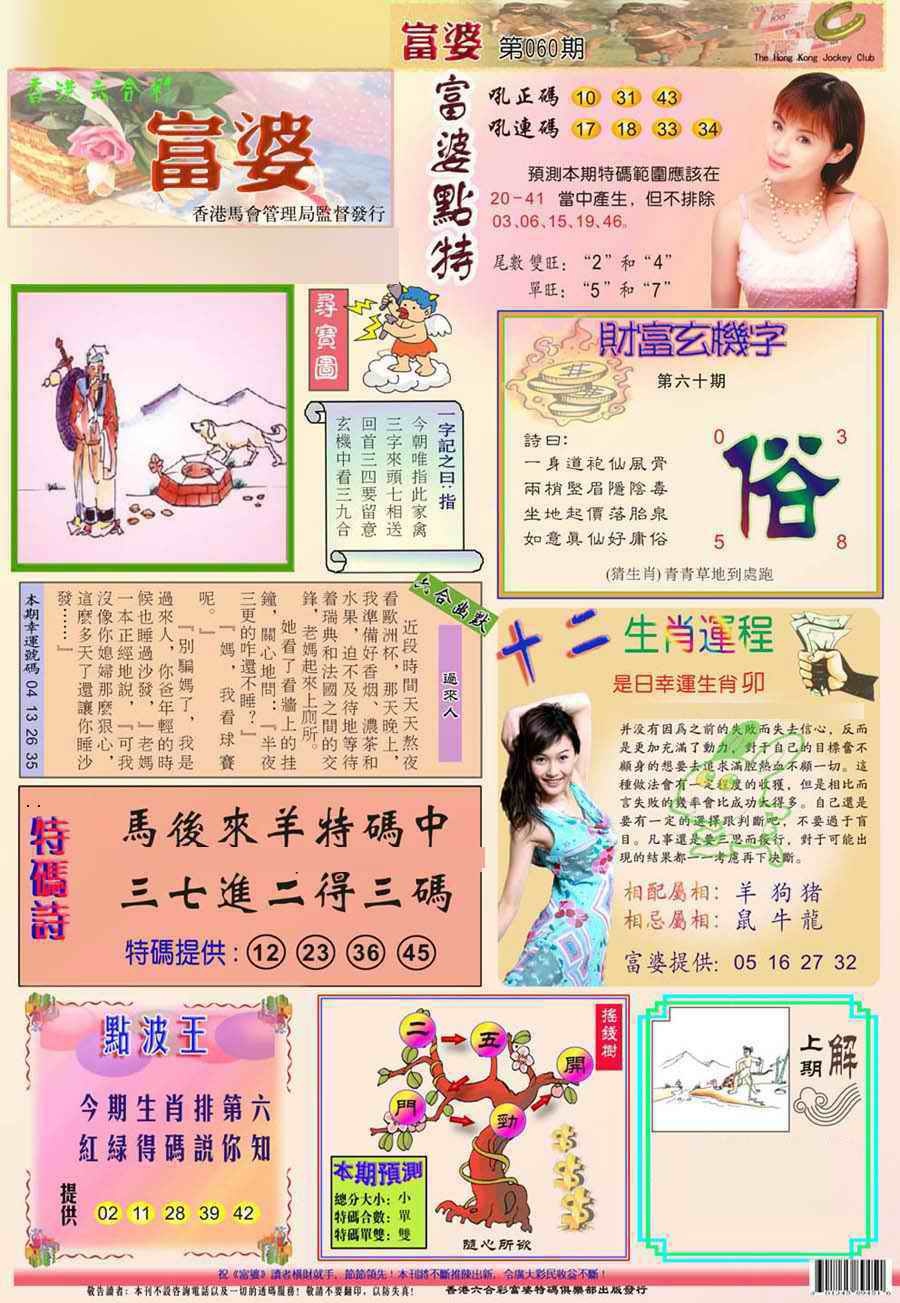 富婆 第060期
The Hong Kong Jockey Club
香港六合彩
富婆
香港馬會管理局監督發行
富婆點特
吼正碼 10 31 43
吼連碼 17 18 33 34
預測本期特碼範圍應該在
20-41 當中產生，但不排除
03、06、15、19、46。
尾數雙旺：“2”和“4”
單旺：“5”和“7”
尋寶圖
一字記之曰：指
今朝唯指此家禽
三字來頭七相送
回首三四要留意
玄機中看三九合
財富玄機字
第六十期
詩曰：
一身道袍仙風骨
兩梢堅眉隱陰毒
坐地起價落胎泉
如意真仙好庸俗
0 3
俗
5 8
(猜生肖)青青草地到處跑
六合幽默
過來人
近段時間天天熬夜
看歐洲杯，那天晚上，
我準備好香烟、濃茶和
水果，迫不及待地等待
着瑞典和法國之間的交
鋒，老媽起來上廁所。
她看了看牆上的挂
鐘，關心地問：『半夜
三更的咋還不睡？』
『媽，我看球賽
呢。』
『別騙媽了，我是
過來人，你爸年輕的時
候也睡過沙發，』老媽
一本正經地說，『可我
沒像你媳婦那麼狠心，
這麼多天了還讓你睡沙
發……』
本期幸運號碼 04 13 26 35
十二生肖運程
是日幸運生肖卯
并没有因爲之前的失敗而失去信心，反而
是更加充滿了動力，對于自己的目標奮不
顧身的想要去追求滿腔熱血不顧一切。這
種做法會有一定程度的收獲，但是相比而
言失敗的幾率會比成功大得多。自己還是
要有一定的選擇跟判斷吧，不要過于盲
目。凡事還是要三思而後行，對于可能出
現的結果都一一考慮再下决斷。
相配屬相：羊 狗 猪
相忌屬相：鼠 牛 龍
富婆提供：05 16 27 32
特碼詩
馬後來羊特碼中
三七進二得三碼
特碼提供：12 23 36 45
點波王
今期生肖排第六
紅緑得碼説你知
提供 02 11 28 39 42
搖錢樹
二 五 開
門 勁
本期預測
總分大小：小
特碼合數：單
特碼單雙：雙
隨心所欲
上期解
祝《富婆》讀者橫財就手，節節領先！本刊將不斷推陳出新，令廣大彩民收益不斷！
敬告讀者：本刊不設咨詢電話以及一切的透碼服務！敬請不要翻印，以防失真！ 香港六合彩富婆特碼俱樂部出版發行